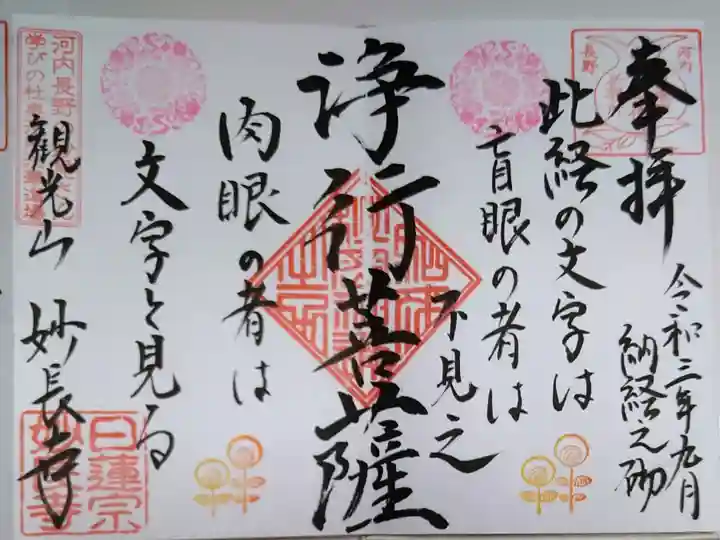 奉拝
令和三年九月
納経之砌
河内
長野
此経の文字は
盲眼の者は
不見之
浄行菩薩
肉眼の者は
文字と見る
観光山 妙長寺
河内長野
学びの仕
日蓮宗
妙長寺